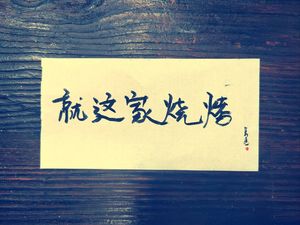 就这家烧烤